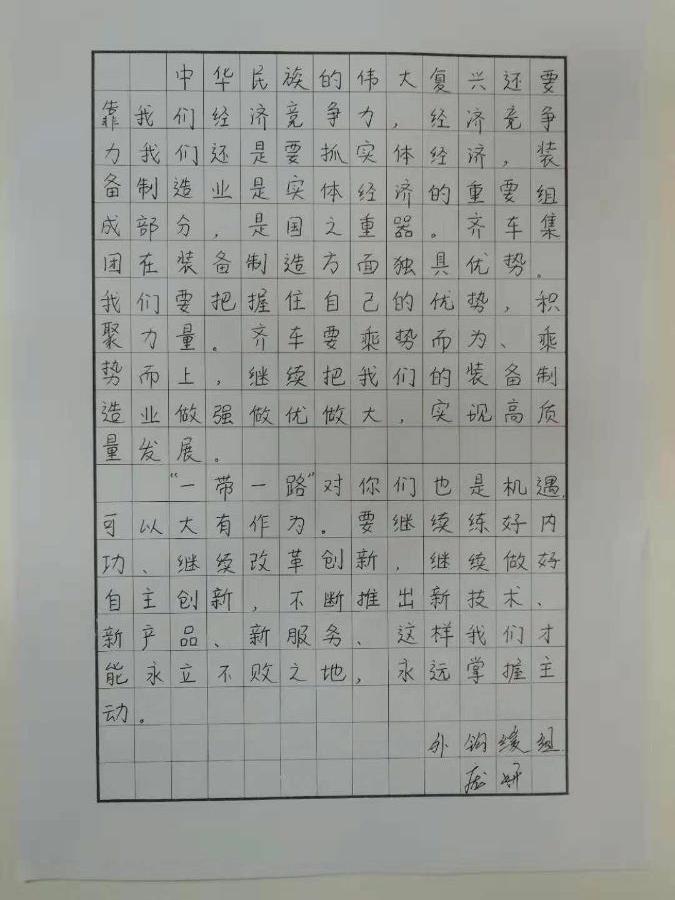 中华民族的伟大复兴还要
靠我们经济竞争力,经济竞争
力我们还是要抓实体经济,装
备制造业是实体经济的重要组
成部分,是国之重器。齐车集
团在装备制造方面独具优势。
我们要把握住自己的优势,积
聚力量。齐车要乘势而为、乘
势而上,继续把我们的装备制
造业做强做优做大,实现高质
量发展。
“一带一路”对你们也是机遇,
可以大有作为。要继续练好内
功、继续改革创新,继续做好
自主创新,不断推出新技术、
新产品、新服务、这样我们才
能永立不败之地,永远掌握主
动。
外钩缓组